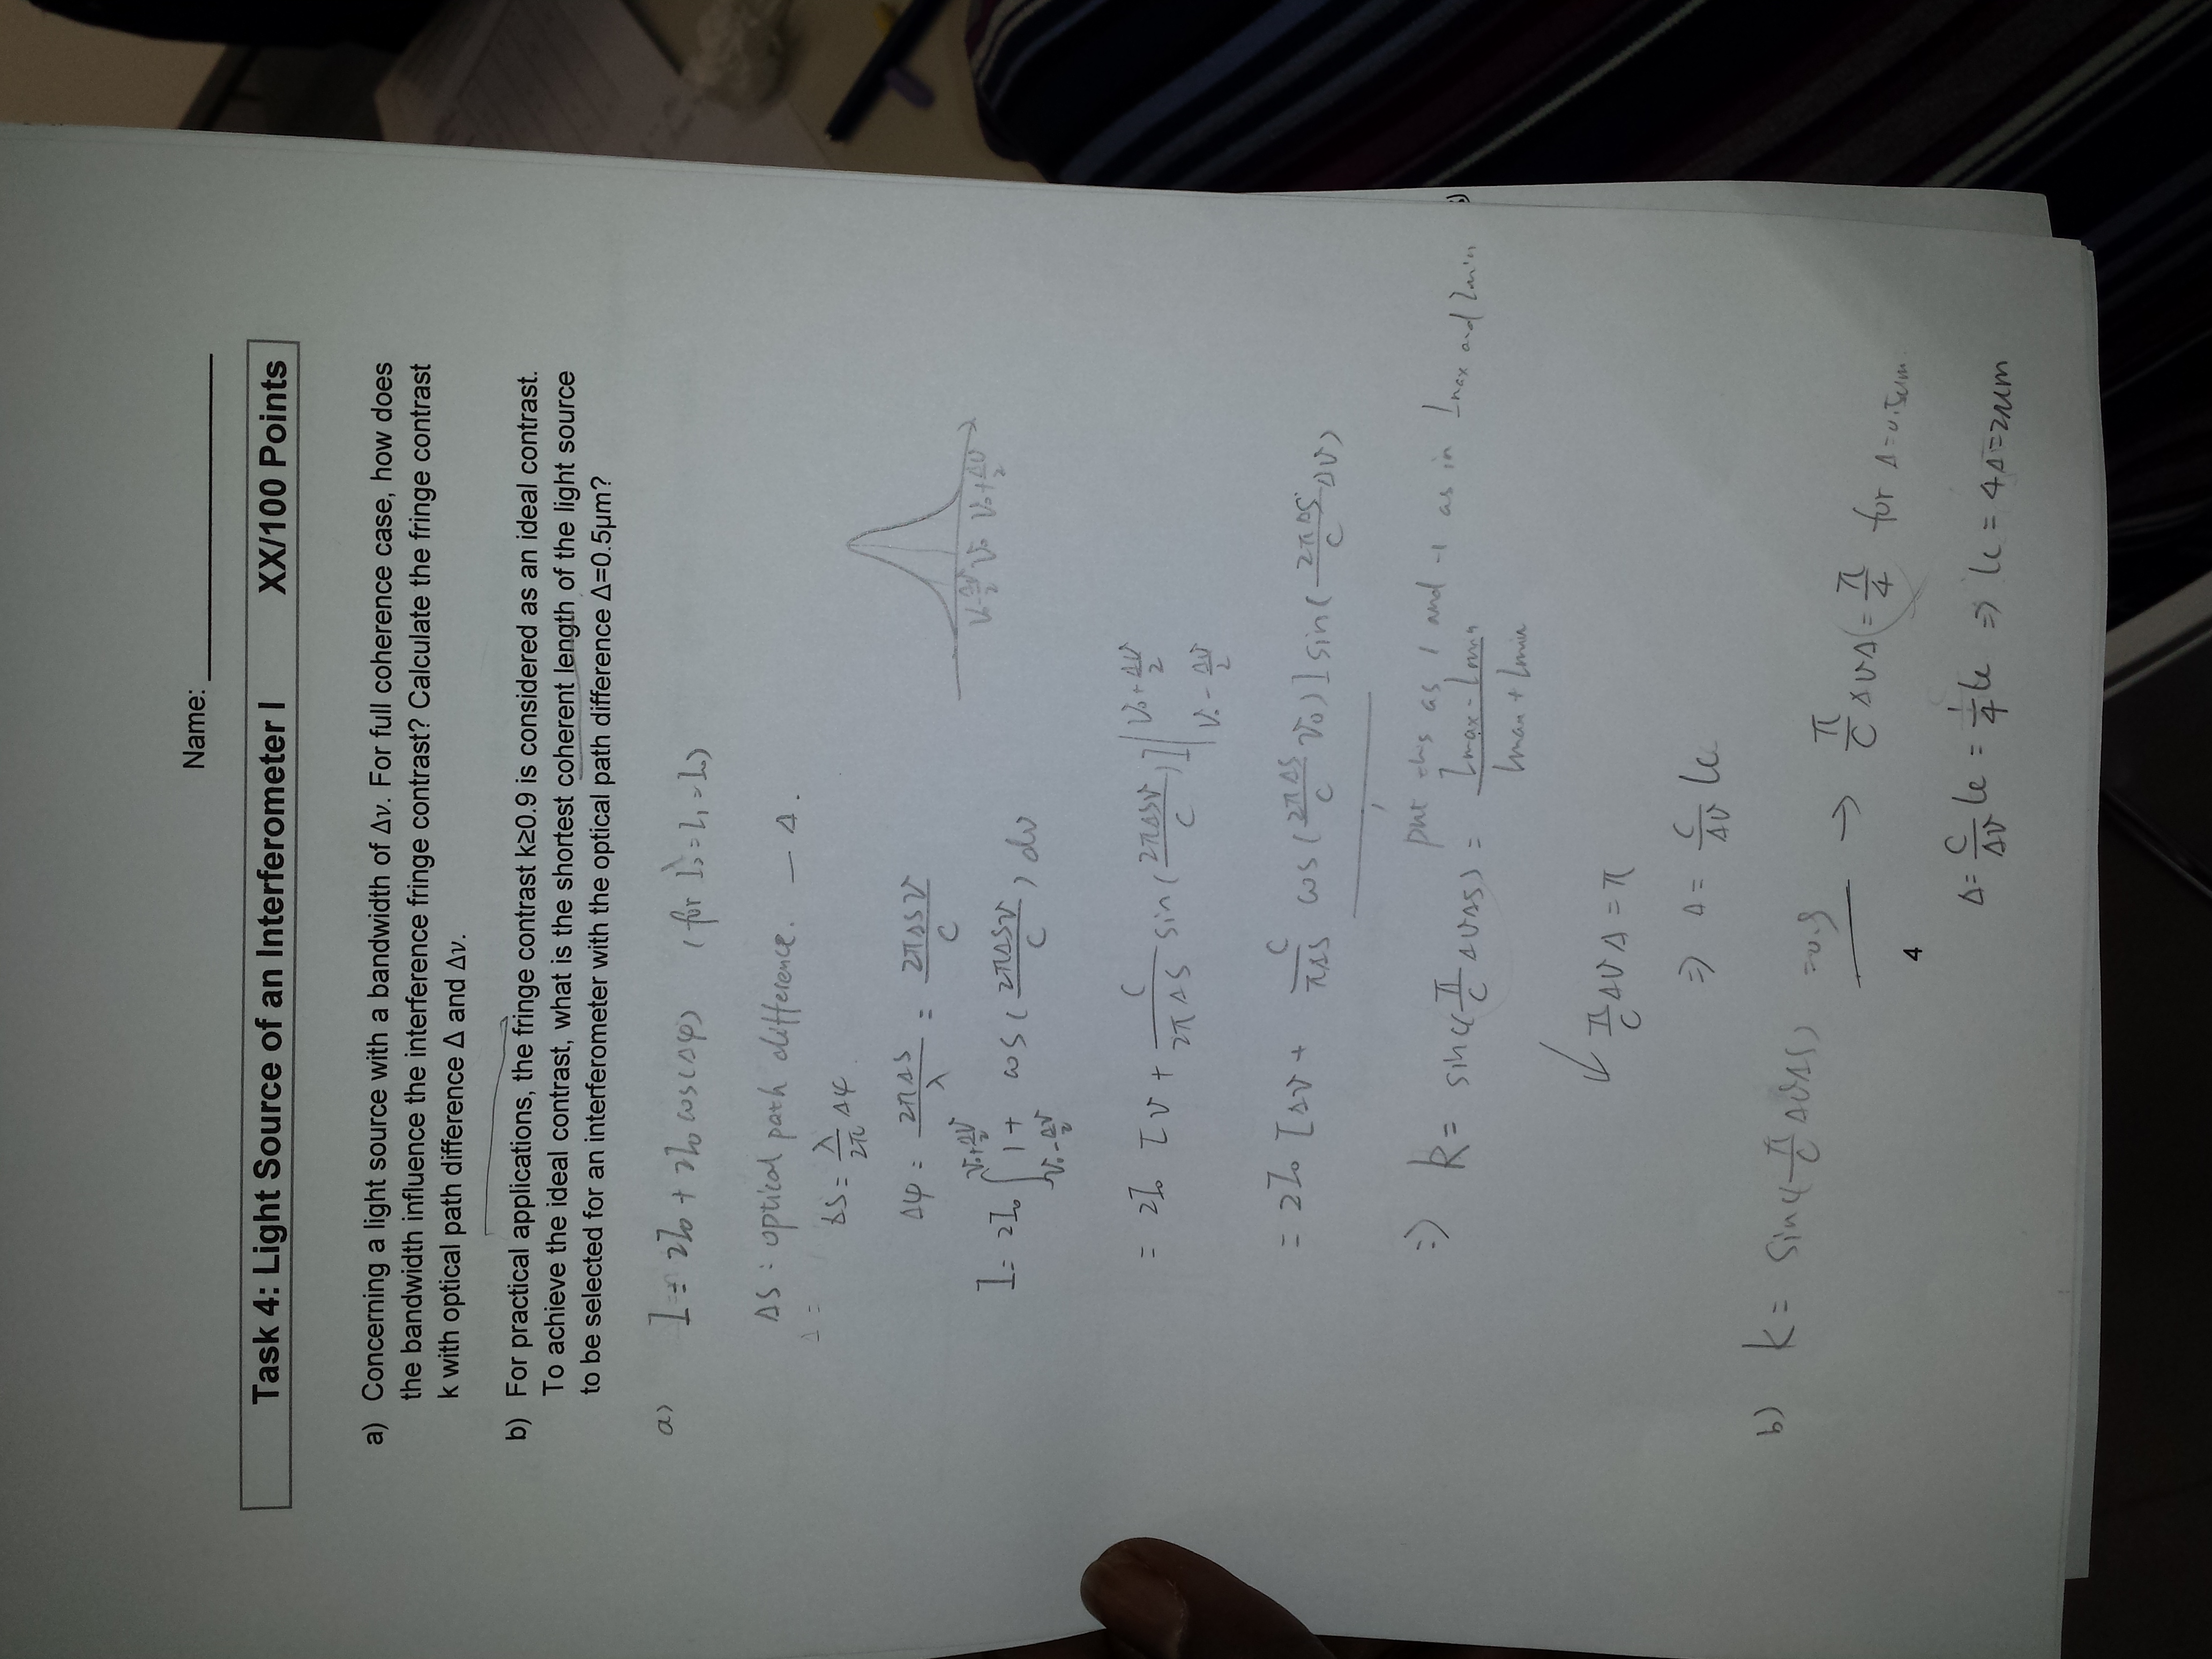 Name:
Task 4: Light Source of an Interferometer I XX/100 Points
a) Concerning a light source with a bandwidth of Δν. For full coherence case, how does
the bandwidth influence the interference fringe contrast? Calculate the fringe contrast
k with optical path difference Δ and Δν.
b) For practical applications, the fringe contrast k≥0.9 is considered as an ideal contrast.
To achieve the ideal contrast, what is the shortest coherent length of the light source
to be selected for an interferometer with the optical path difference Δ=0.5μm?
a) I = 2I₀ + 2I₀ cos(Δφ) (for I₂ = I₁ = I₀)
ΔS : optical path difference. — Δ.
Δ =
ΔS = λ/2π Δφ
Δφ = 2πΔS/λ = 2πΔSν/C
I = 2I₀ ∫_{ν₀-Δν/2}^{ν₀+Δν/2} 1 + cos(2πΔSν/C) dν
ν₀-Δν/2 ν₀ ν₀+Δν/2
= 2I₀ [ν + C/2πΔS sin(2πΔSν/C)] |_{ν₀-Δν/2}^{ν₀+Δν/2}
= 2I₀ [Δν + C/πΔS cos(2πΔS/C ν₀)] sin(2πΔS/C Δν)
put this as 1 and -1 as in Imax and Imin
=> k = sinc(π/C ΔνΔS) = Imax - Imin / Imax + Imin
↙ π/C Δν Δ = π
=> Δ = C/Δν lc
b) k = sinc(π/C ΔνΔS) = 0.9 → π/C ΔνΔ = π/4 for Δ=0.5um
4
Δ = C/Δν lc = 1/4 lc => lc = 4Δ = 2μm